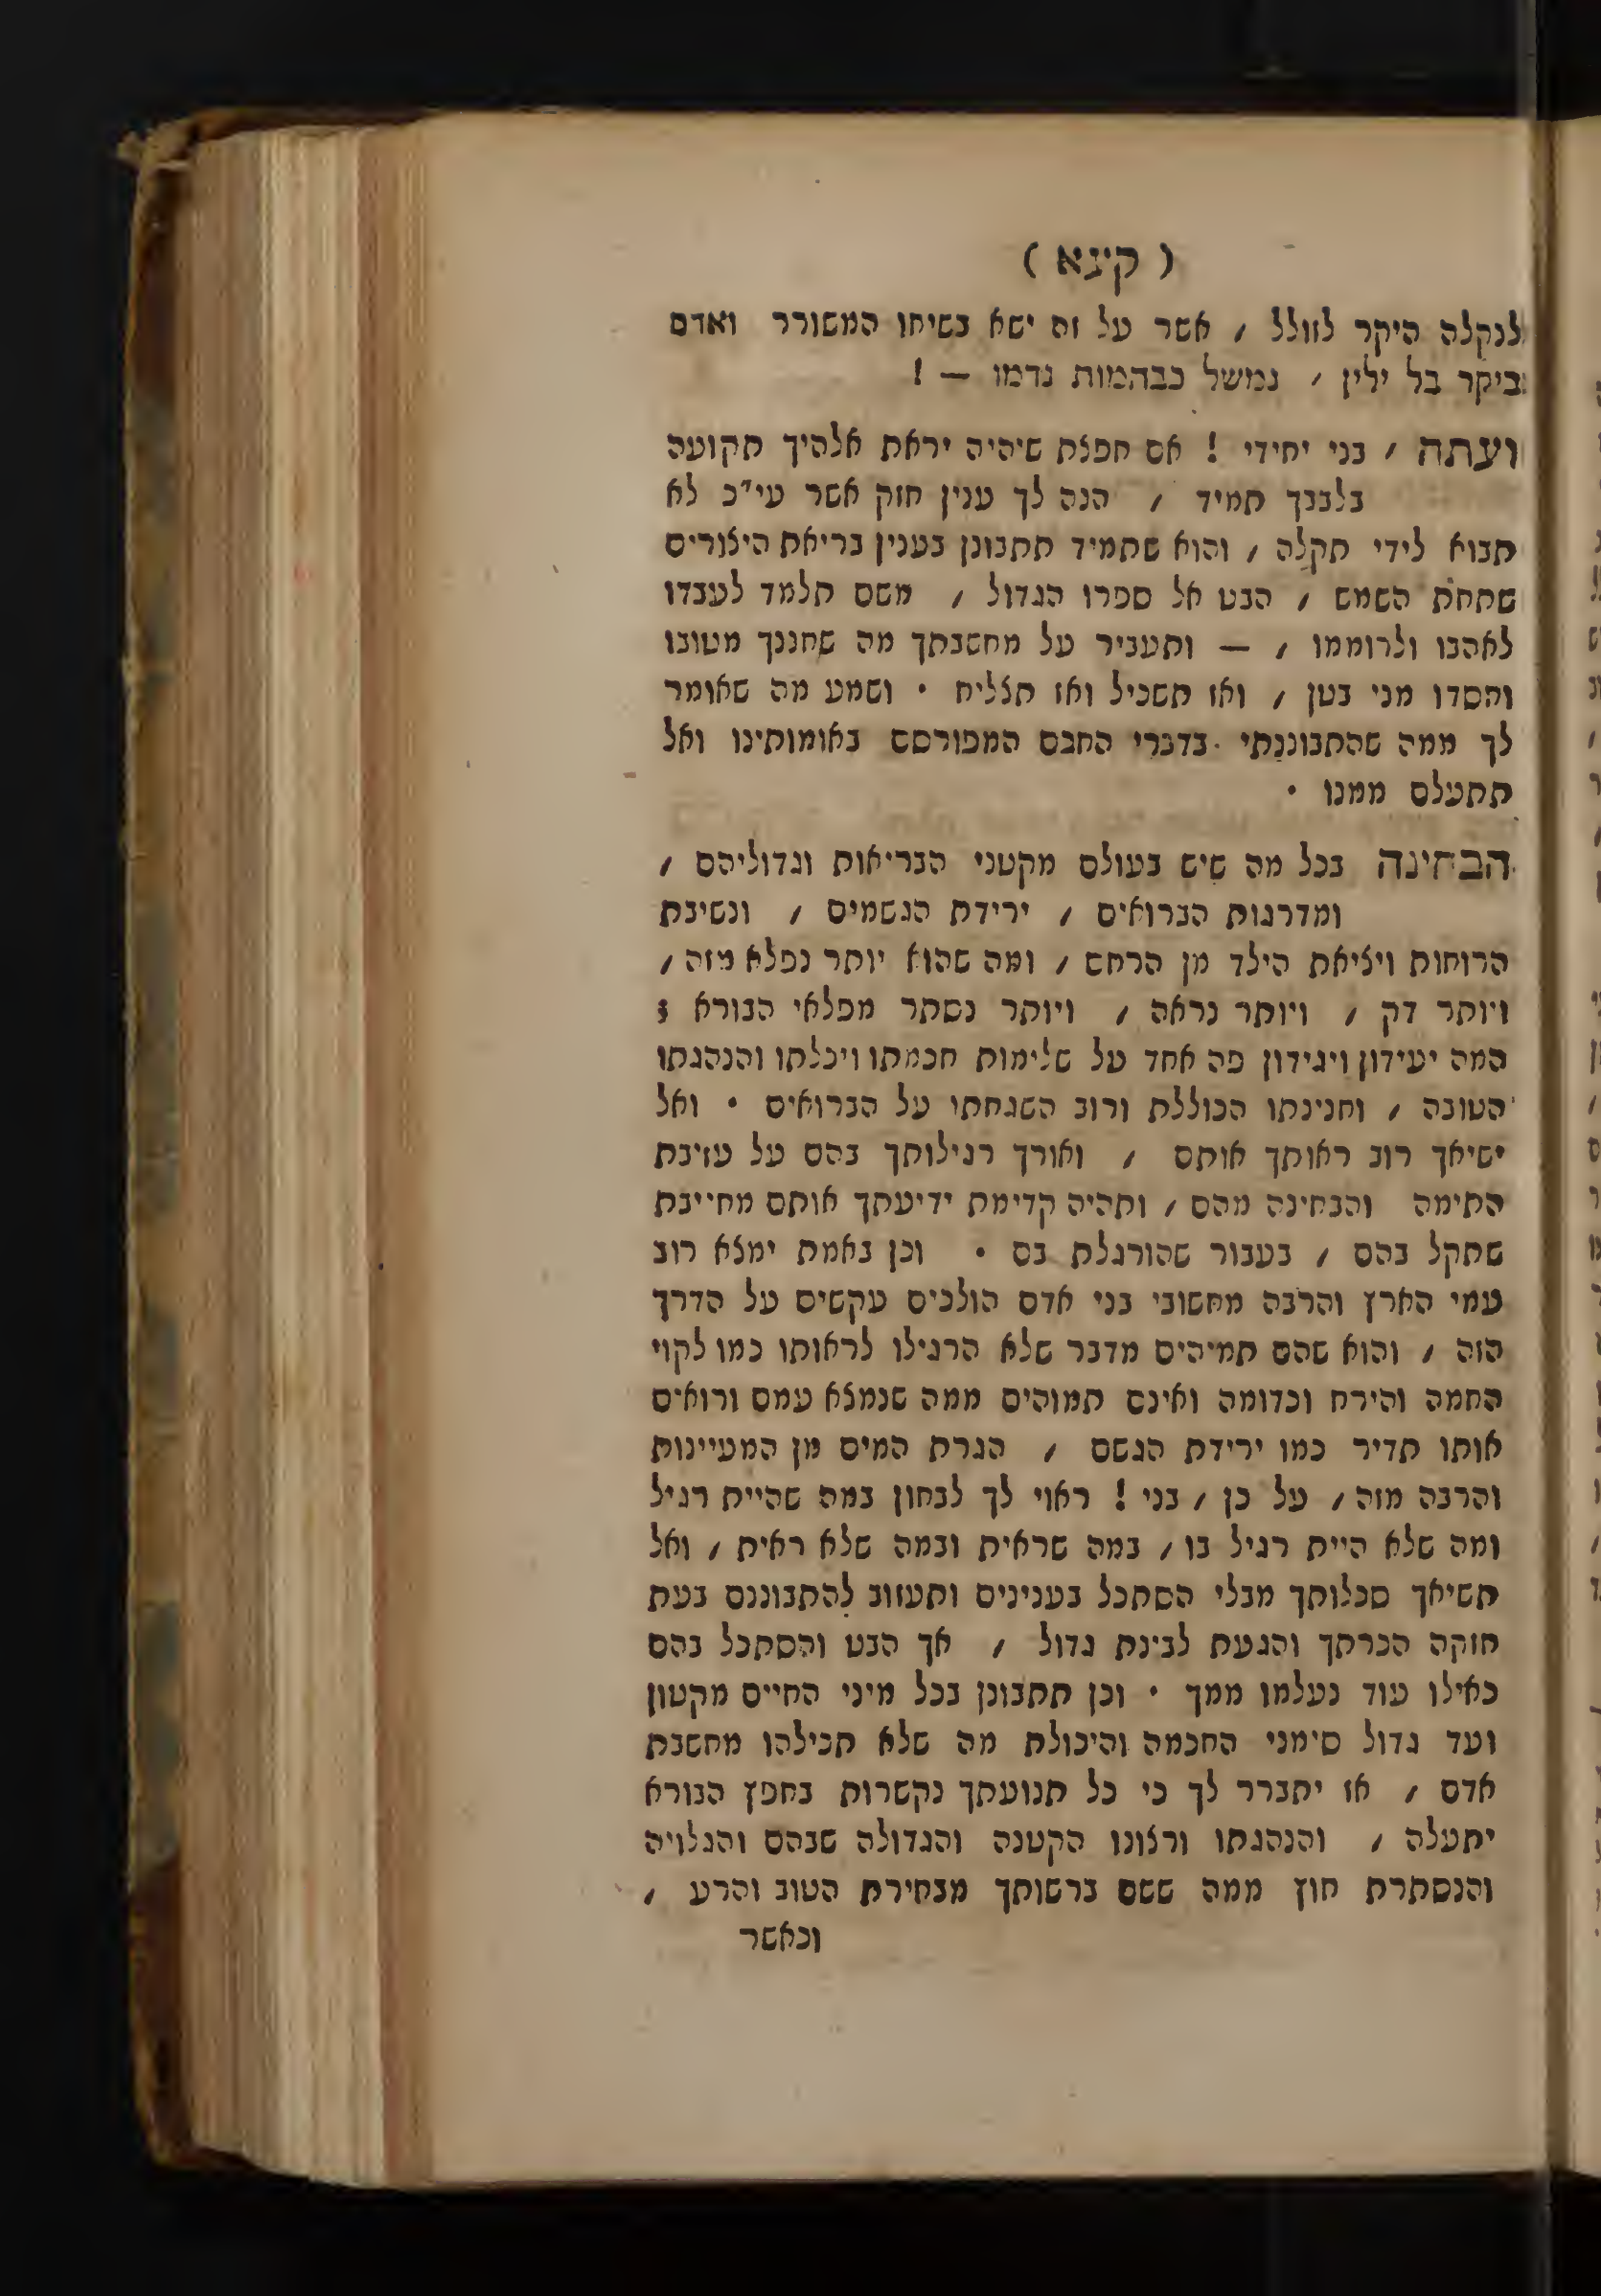 ( קצא )
לנקלה היקר לזולל / אשר על זה ישא בשיחו המשורר ואדם
ביקר בל ילין / נמשל כבהמות נדמו — !
ועתה / בני יחידי ! אם חפצת שיהיה יראת אלהיך תקועה
בלבבך תמיד / הנה לך ענין חזק אשר עי״כ לא
תבוא לידי תקלה / והוא שתמיד תתבונן בענין בריאת היצורים
שתחת השמש / הבט אל ספרו הגדול / משם תלמד לעבדו
לאהבו ולרוממו / — ותעביר על מחשבתך מה שחננך מטובו
וחסדו מני בטן / ואז תשכיל ואז תצליח • ושמע מה שאומר
לך ממה שהתבוננתי בדברי החכם המפורסם באומותינו ואל
תתעלם ממנו •
הבחינה בכל מה שיש בעולם מקטני הבריאות וגדוליהם /
ומדרגות הברואים / ירידת הגשמים / ונשיבת
הרוחות ויציאת הילד מן הרחם / ומה שהוא יותר נפלא מזה /
ויותר דק / ויותר נראה / ויותר נסתר מפלאי הבורא ;
המה יעידון ויגידון פה אחד על שלימות חכמתו ויכלתו והנהגתו
הטובה / וחנינתו הכוללת ורוב השגחתו על הברואים • ואל
ישיאך רוב ראותך אותם / ואורך רגילותך בהם על עזיבת
התימה והבחינה מהם / ותהיה קדימת ידיעתך אותם מחייבת
שתקל בהם / בעבור שהורגלת בם • וכן באמת ימצא רוב
עמי הארץ והרבה מחשובי בני אדם הולכים עקשים על הדרך
הזה / והוא שהם תמיהים מדבר שלא הרגילו לראותו כמו לקוי
החמה והירח וכדומה ואינם תמוהים ממה שנמצא עמם ורואים
אותו תדיר כמו ירידת הגשם / הגרת המים מן המעיינות
והרבה מזה / על כן / בני ! ראוי לך לבחון במה שהיית רגיל
ומה שלא היית רגיל בו / במה שראית ובמה שלא ראית / ואל
תשיאך סכלותך מבלי הסתכל בענינים ותעזוב להתבוננם בעת
חזקה הכרתך והגעת לבינת גדול / אך הבט והסתכל בהם
כאילו עוד נעלמו ממך • וכן תתבונן בכל מיני החיים מקטון
ועד גדול סימני החכמה והיכולת מה שלא תכילהו מחשבת
אדם / אז יתברר לך כי כל תנועתך נקשרות בחפץ הבורא
יתעלה / והנהגתו ורצונו הקטנה והגדולה שבהם והגלויה
והנסתרת חוץ ממה ששם ברשותך מבחירת הטוב והרע /
וכאשר